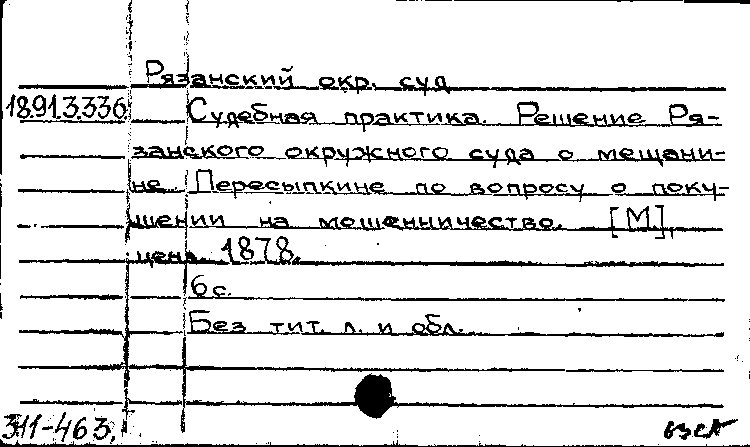 Рязанский окр. суд
18.91.3.336 Судебная практика. Решение Ря-
занского окружного суда о мещани-
не Пересыпкине по вопросу о поку-
шении на мошенничество. [М.],
ценз. 1878.
6 с.
Без тит. л. и обл.
311-463.